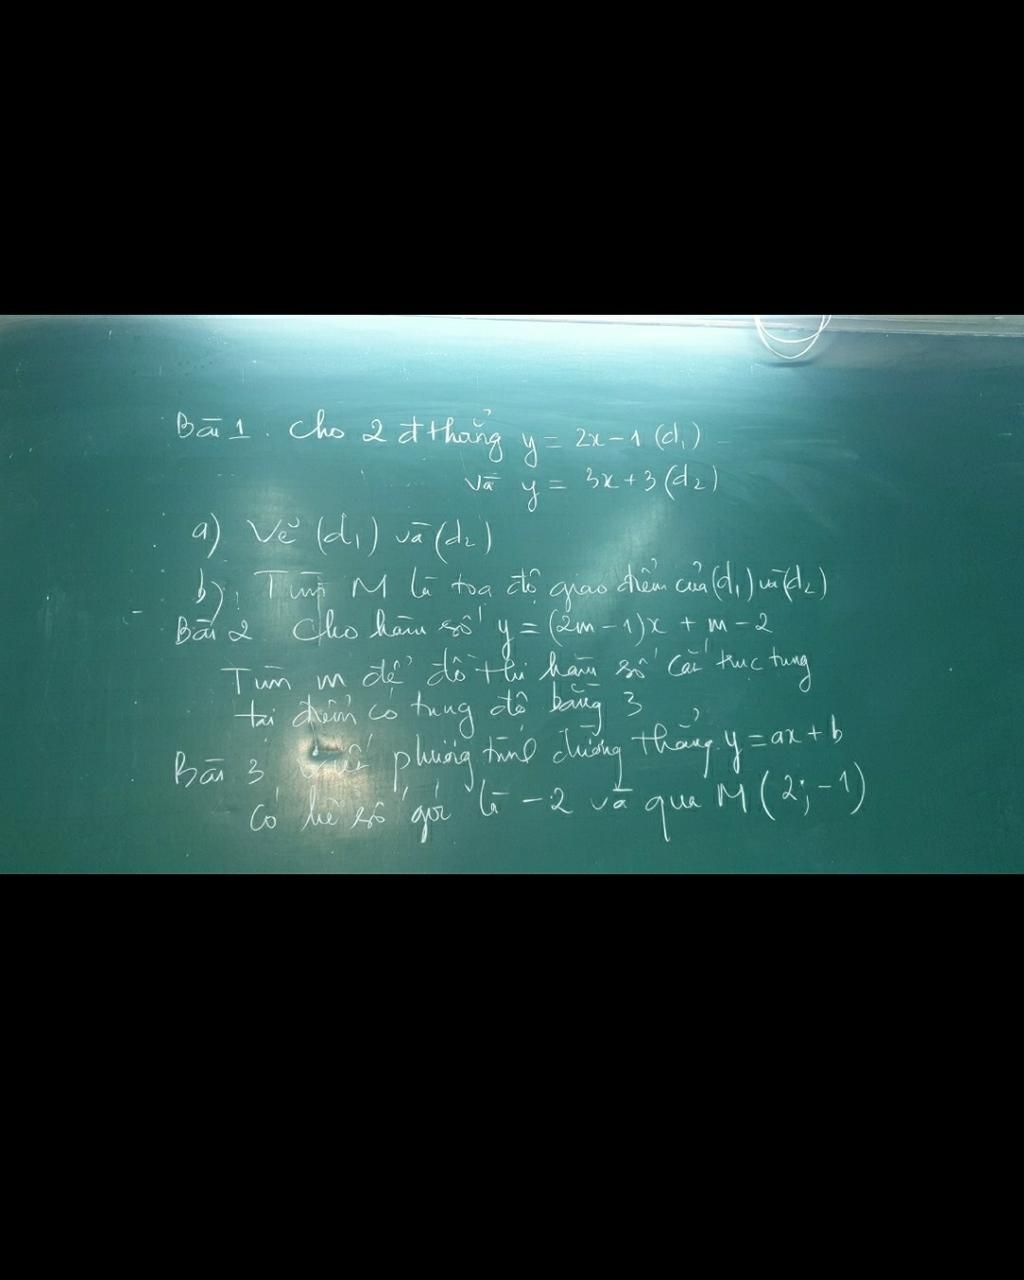 Bài 1. Cho 2 đ thẳng y = 2x - 1 (d₁)
và y = 3x + 3 (d₂)
a) Vẽ (d₁) và (d₂)
b) Tìm M là tọa độ giao điểm của (d₁) và (d₂)
Bài 2 Cho hàm số y = (2m - 1)x + m - 2
Tìm m để đồ thị hàm số cắt trục tung
tại điểm có tung độ bằng 3
Bài 3 Viết phương trình đường thẳng y = ax + b
có hệ số góc là -2 và qua M (2; -1)